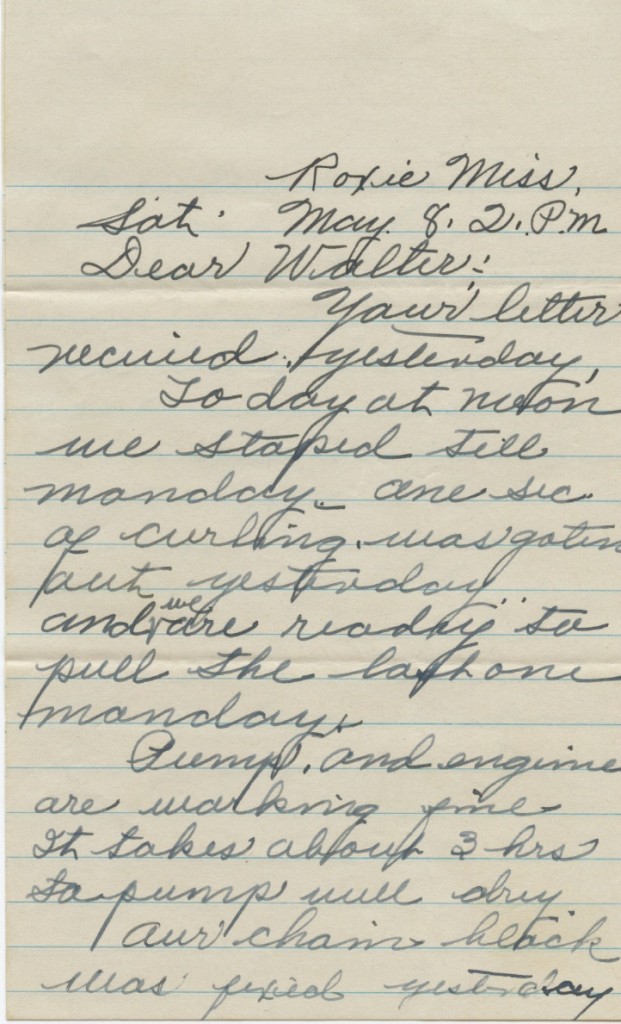 Roxie Miss.
Sat. May. 8. 2. P.m
Dear Walter:
Your letter
recieied yesterday,
To day at noon
we staped till
monday. one sec.
of curbing was goten
out yesterday.
and we are ready to
pull the last one
monday.
Pump, and engine
are working fine
It takes about 3 hrs
to pump well dry
Our chain block
was fixed yesterday